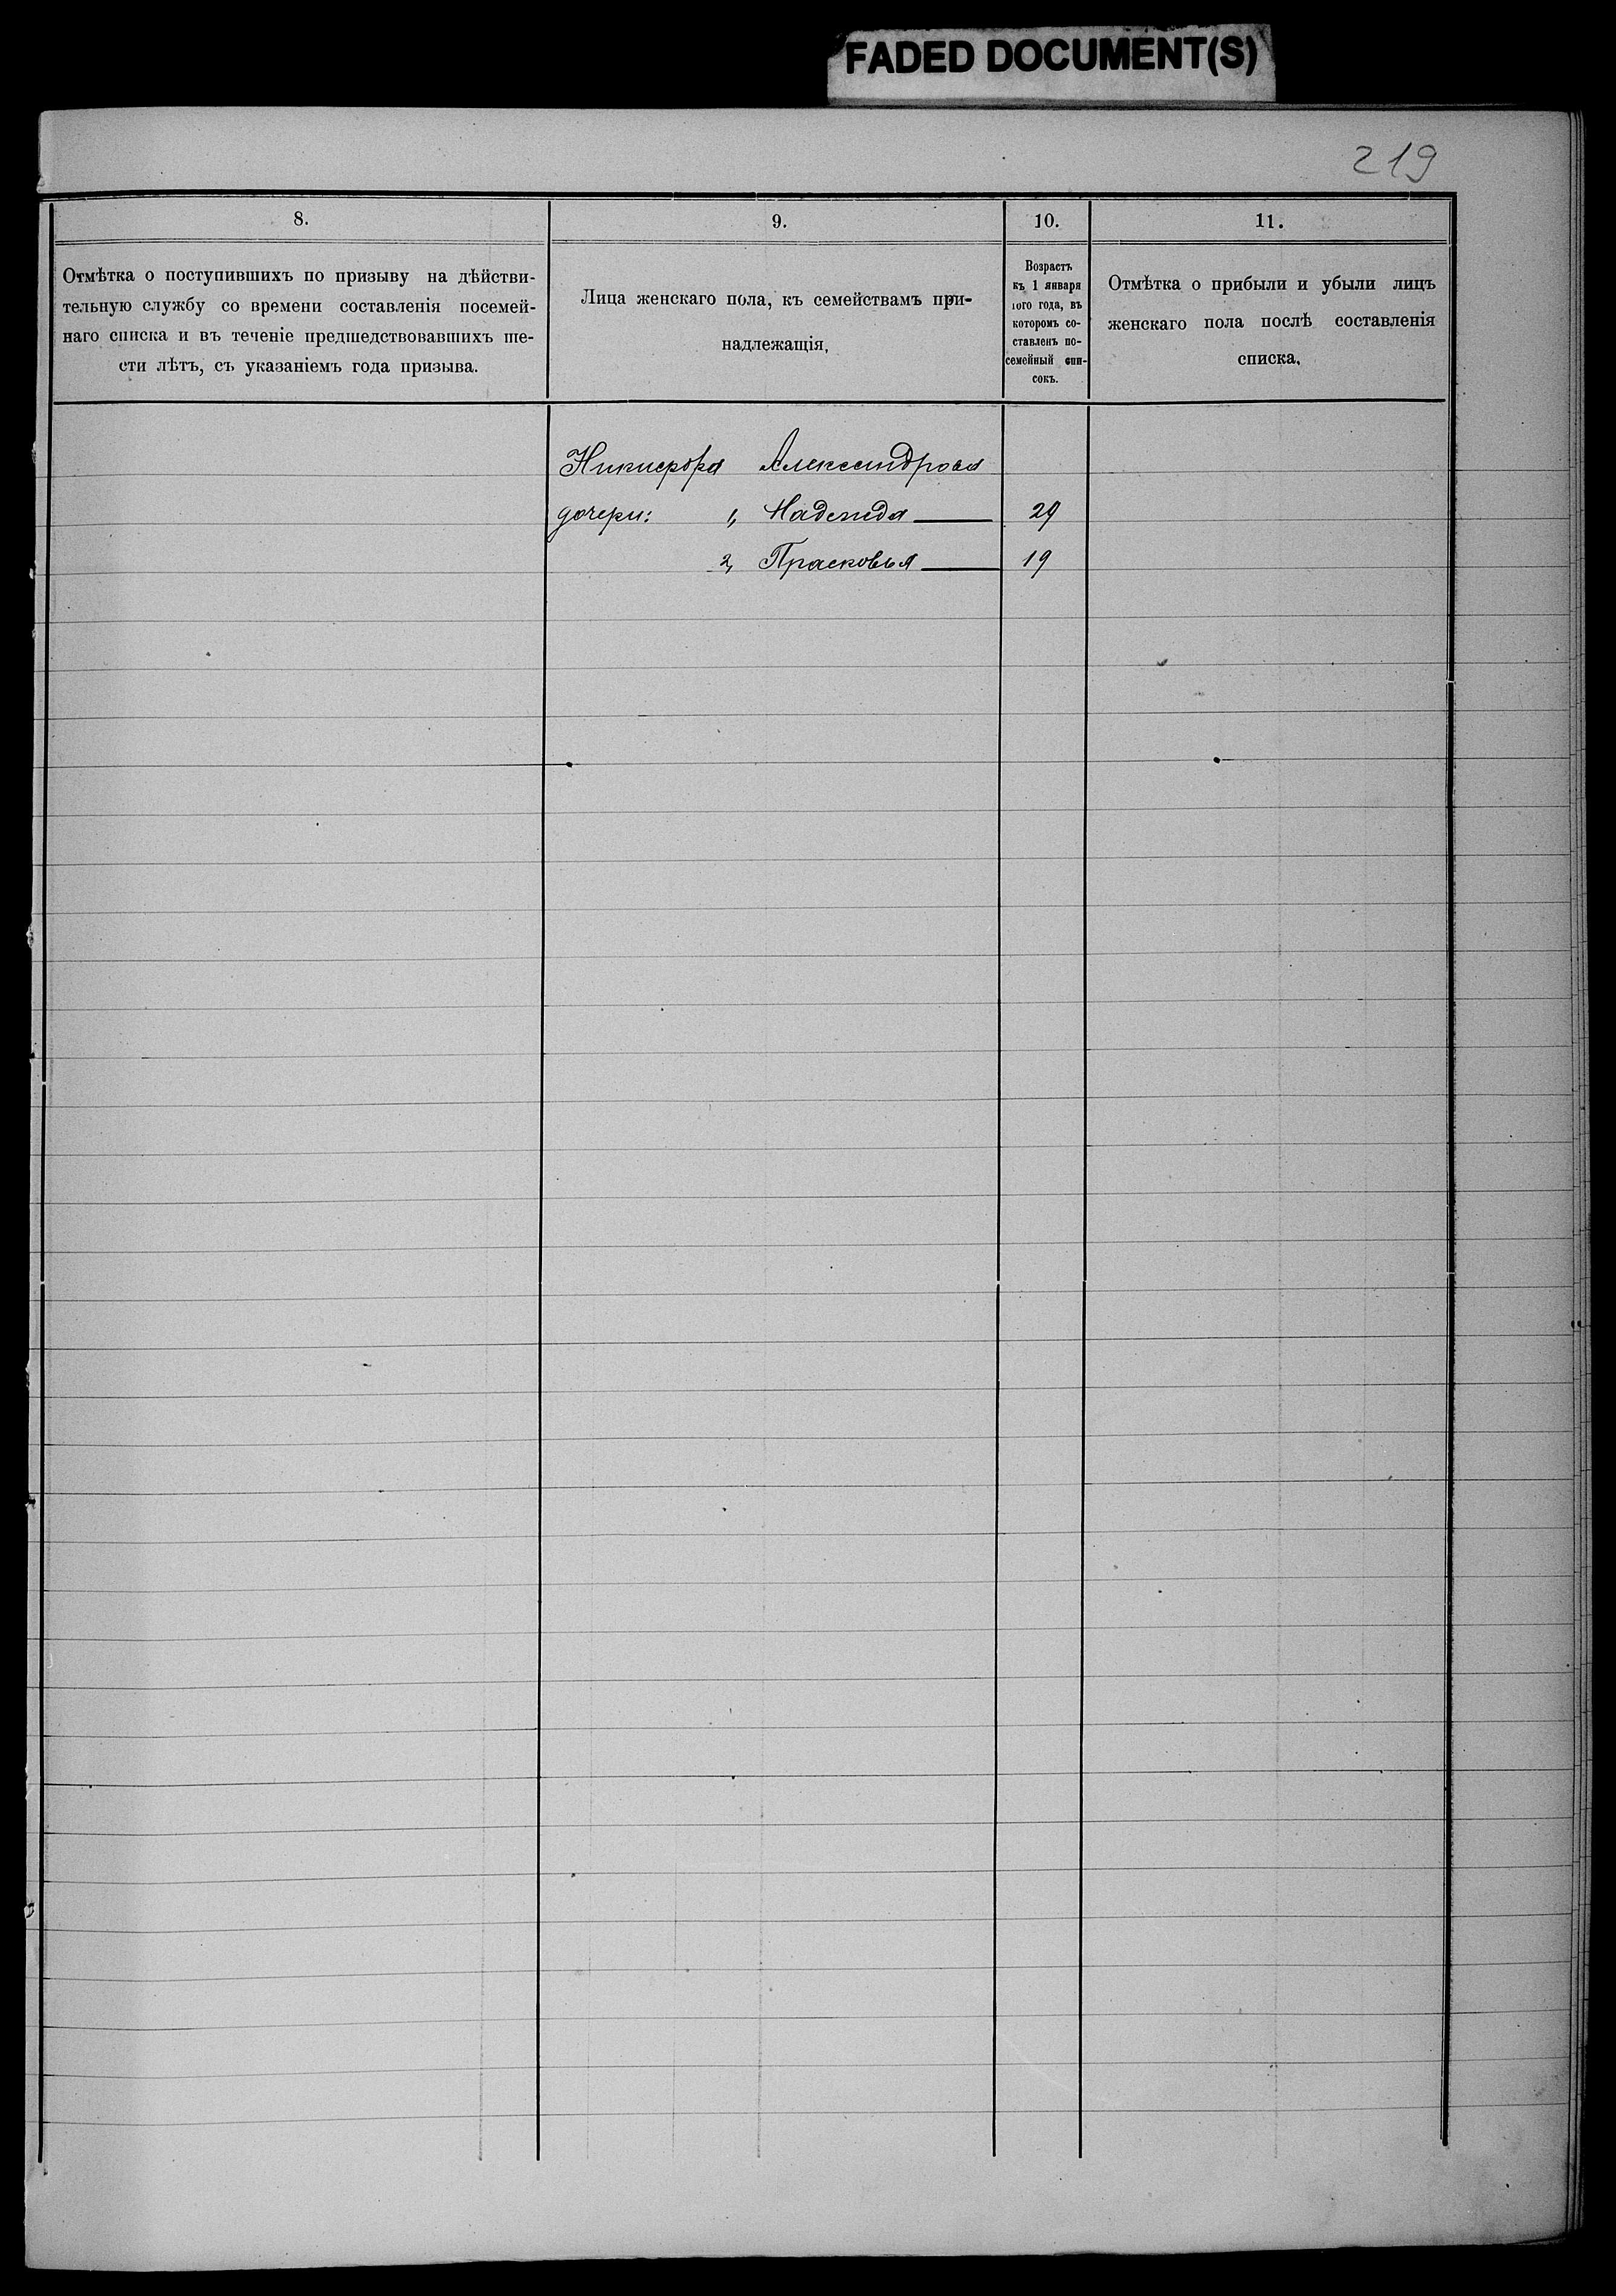 FADED DOCUMENT(S)
219
8.
Отмѣтка о поступившихъ по призыву на дѣйстви-
тельную службу со времени составленія посемей-
наго списка и въ теченіе предшедствовавшихъ ше-
сти лѣтъ, съ указаніемъ года призыва.
9.
Лица женскаго пола, къ семействамъ при-
надлежащія,
10.
Возрастъ
къ 1 января
того года, въ
которомъ со-
ставленъ по-
семейный спи-
сокъ.
11.
Отмѣтка о прибыли и убыли лицъ
женскаго пола послѣ составленія
списка.
Никифора Александрова
дочери: 1, Надежда 29
2, Прасковья 19